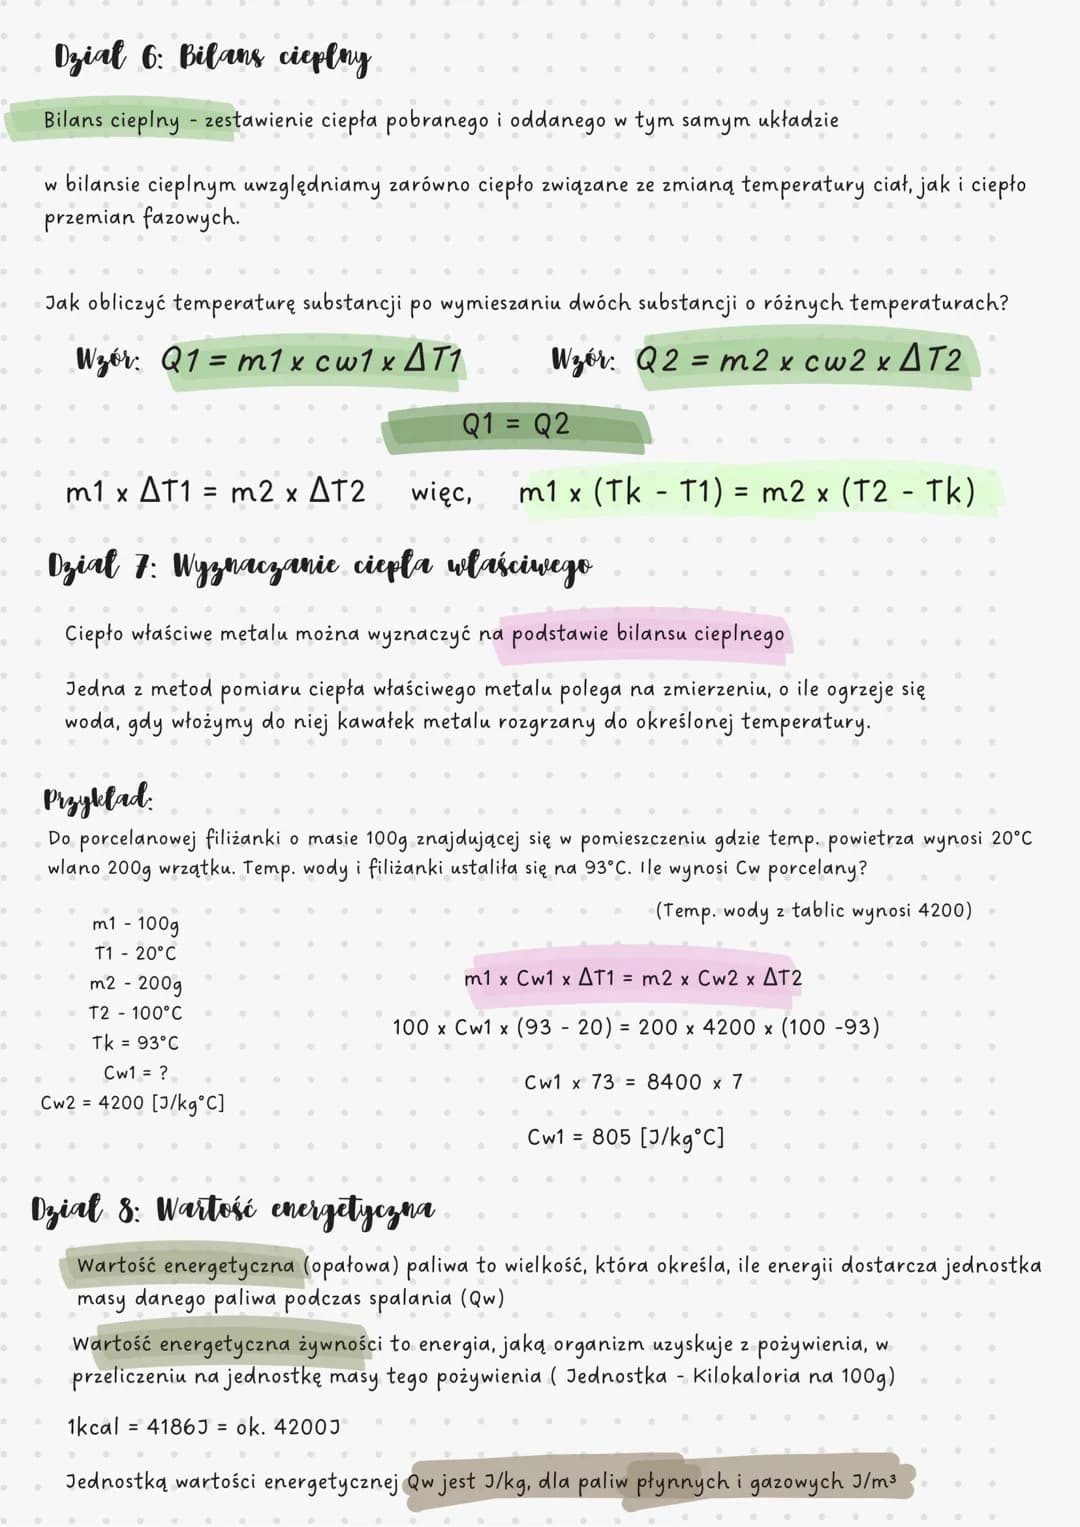 Dział 6: Bilans cieplny
Bilans cieplny - zestawienie ciepła pobranego i oddanego w tym samym układzie
w bilansie cieplnym uwzględniamy zarówno ciepło związane ze zmianą temperatury ciał, jak i ciepło
przemian fazowych.
Jak obliczyć temperaturę substancji po wymieszaniu dwóch substancji o różnych temperaturach?
Wzór: Q1 = m1 x cw1 x ΔT1 Wzór: Q2 = m2 x cw2 x ΔT2
Q1 = Q2
m1 x ΔT1 = m2 x ΔT2 więc, m1 x (Tk - T1) = m2 x (T2 - Tk)
Dział 7: Wyznaczanie ciepła właściwego
Ciepło właściwe metalu można wyznaczyć na podstawie bilansu cieplnego
Jedna z metod pomiaru ciepła właściwego metalu polega na zmierzeniu, o ile ogrzeje się
woda, gdy włożymy do niej kawałek metalu rozgrzany do określonej temperatury.
Przykład:
Do porcelanowej filiżanki o masie 100g znajdującej się w pomieszczeniu gdzie temp. powietrza wynosi 20°C
wlano 200g wrzątku. Temp. wody i filiżanki ustaliła się na 93°C. Ile wynosi Cw porcelany?
(Temp. wody z tablic wynosi 4200)
m1 - 100g
T1 - 20°C
m2 - 200g
T2 - 100°C
Tk = 93°C
Cw1 = ?
Cw2 = 4200 [J/kg°C]
m1 x Cw1 x ΔT1 = m2 x Cw2 x ΔT2
100 x Cw1 x (93 - 20) = 200 x 4200 x (100 -93)
Cw1 x 73 = 8400 x 7
Cw1 = 805 [J/kg°C]
Dział 8: Wartość energetyczna
Wartość energetyczna (opałowa) paliwa to wielkość, która określa, ile energii dostarcza jednostka
masy danego paliwa podczas spalania (Qw)
Wartość energetyczna żywności to energia, jaką organizm uzyskuje z pożywienia, w
przeliczeniu na jednostkę masy tego pożywienia ( Jednostka - Kilokaloria na 100g)
1kcal = 4186J = ok. 4200J
Jednostką wartości energetycznej Qw jest J/kg, dla paliw płynnych i gazowych J/m³